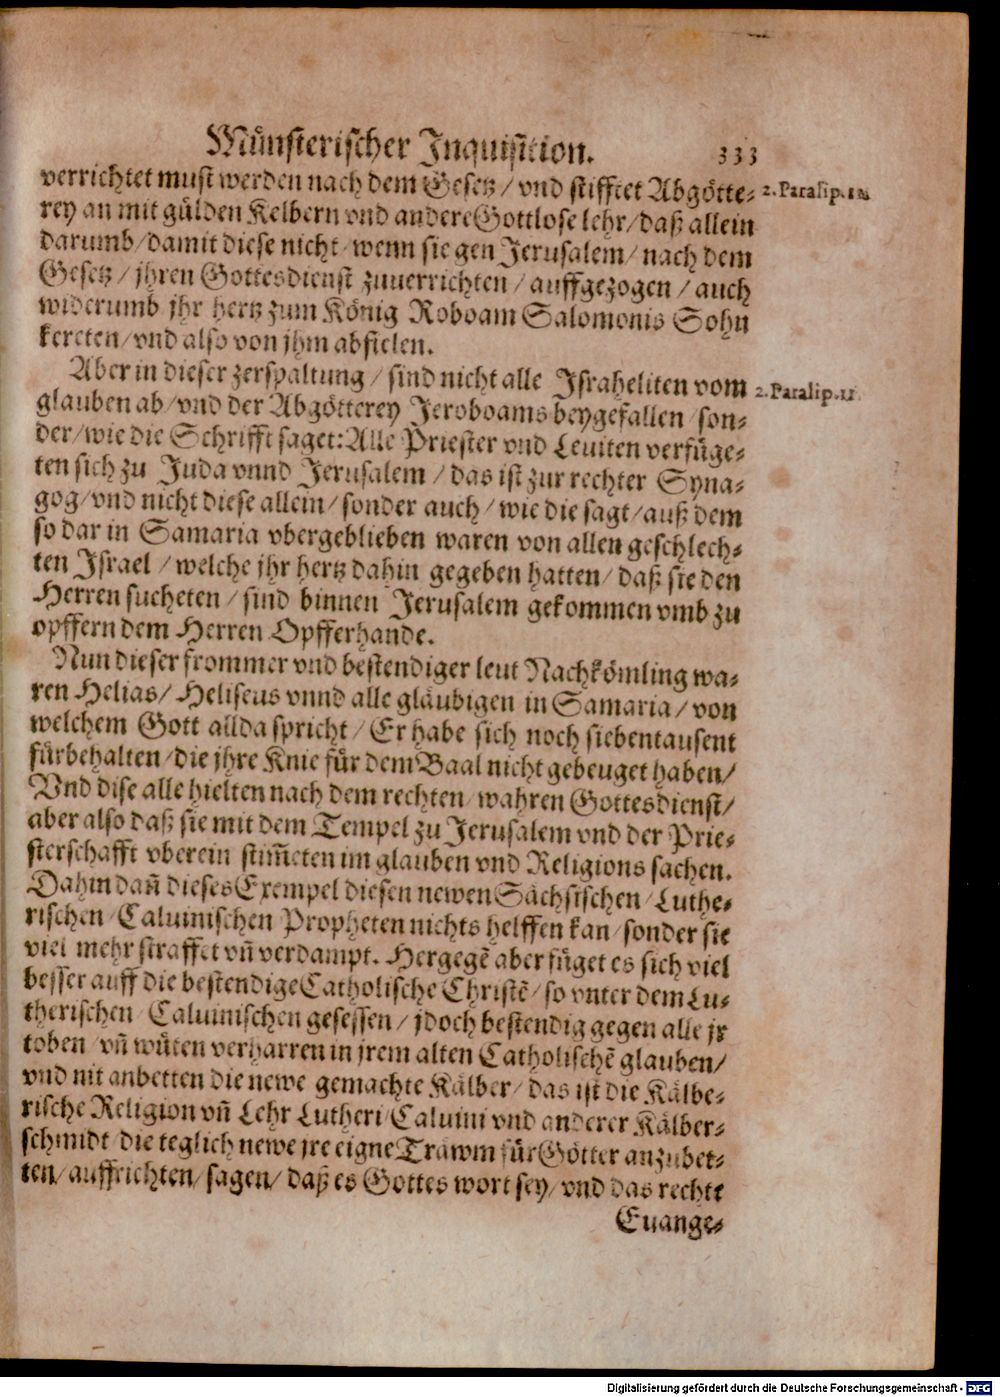 Münsterischer Inquisition. 333
verrichtet must werden nach dem Gesetz / vnd stifftet Abgötte-
2. Paralip. 11.
rey an mit gülden Kelbern vnd andere Gottlose lehr / daß allein
darumb / damit diese nicht / wenn sie gen Jerusalem / nach dem
Gesetz / jhren Gottesdienst zuuerrichten / auffgezogen / auch
widerumb jhr hertz zum König Roboam Salomonis Sohn
kereten / vnd also von jhm abfielen.
Aber in dieser zerspaltung / sind nicht alle Israheliten vom
2. Paralip. 11.
glauben ab / vnd der Abgötterey Jeroboams beygefallen / son-
der / wie die Schrifft saget: Alle Priester vnd Leuiten verfüge-
ten sich zu Juda vnnd Jerusalem / das ist zur rechter Syna-
gog / vnd nicht diese allein / sonder auch / wie die sagt / auß dem
so dar in Samaria vbergeblieben waren von allen geschlech-
ten Israel / welche jhr hertz dahin gegeben hatten / daß sie den
Herren sucheten / sind binnen Jerusalem gekommen vmb zu
opffern dem Herren Opfferhande.
Nun dieser frommer vnd bestendiger leut Nachkömling wa-
ren Helias / Heliseus vnnd alle gläubigen in Samaria / von
welchem Gott allda spricht / Er habe sich noch siebentausent
fürbehalten / die jhre Knie für dem Baal nicht gebeuget haben /
Vnd dise alle hielten nach dem rechten / wahren Gottesdienst /
aber also daß sie mit dem Tempel zu Jerusalem vnd der Prie-
sterschafft vberein stim̃eten im glauben vnd Religions sachen.
Dahin dañ dieses Exempel diesen newen Sächsischen / Luthe-
rischen / Caluinischen Propheten nichts helffen kan / sonder sie
viel mehr straffet vñ verdampt. Hergegẽ aber füget es sich viel
besser auff die bestendige Catholische Christẽ / so vnter dem Lu-
therischen / Caluinischen gesessen / jdoch bestendig gegen alle jr
toben / vñ wüten verharren in jrem alten Catholischẽ glauben /
vnd nit anbetten die newe gemachte Kälber / das ist die Kälbe-
rische Religion vñ Lehr Lutheri / Caluini vnd anderer Kälber-
schmidt / die teglich newe jre eigne Träwm für Götter anzubet-
ten / auffrichten / sagen / daß es Gottes wort sey / vnd das rechte
Euange-
Digitalisierung gefördert durch die Deutsche Forschungsgemeinschaft - DFG